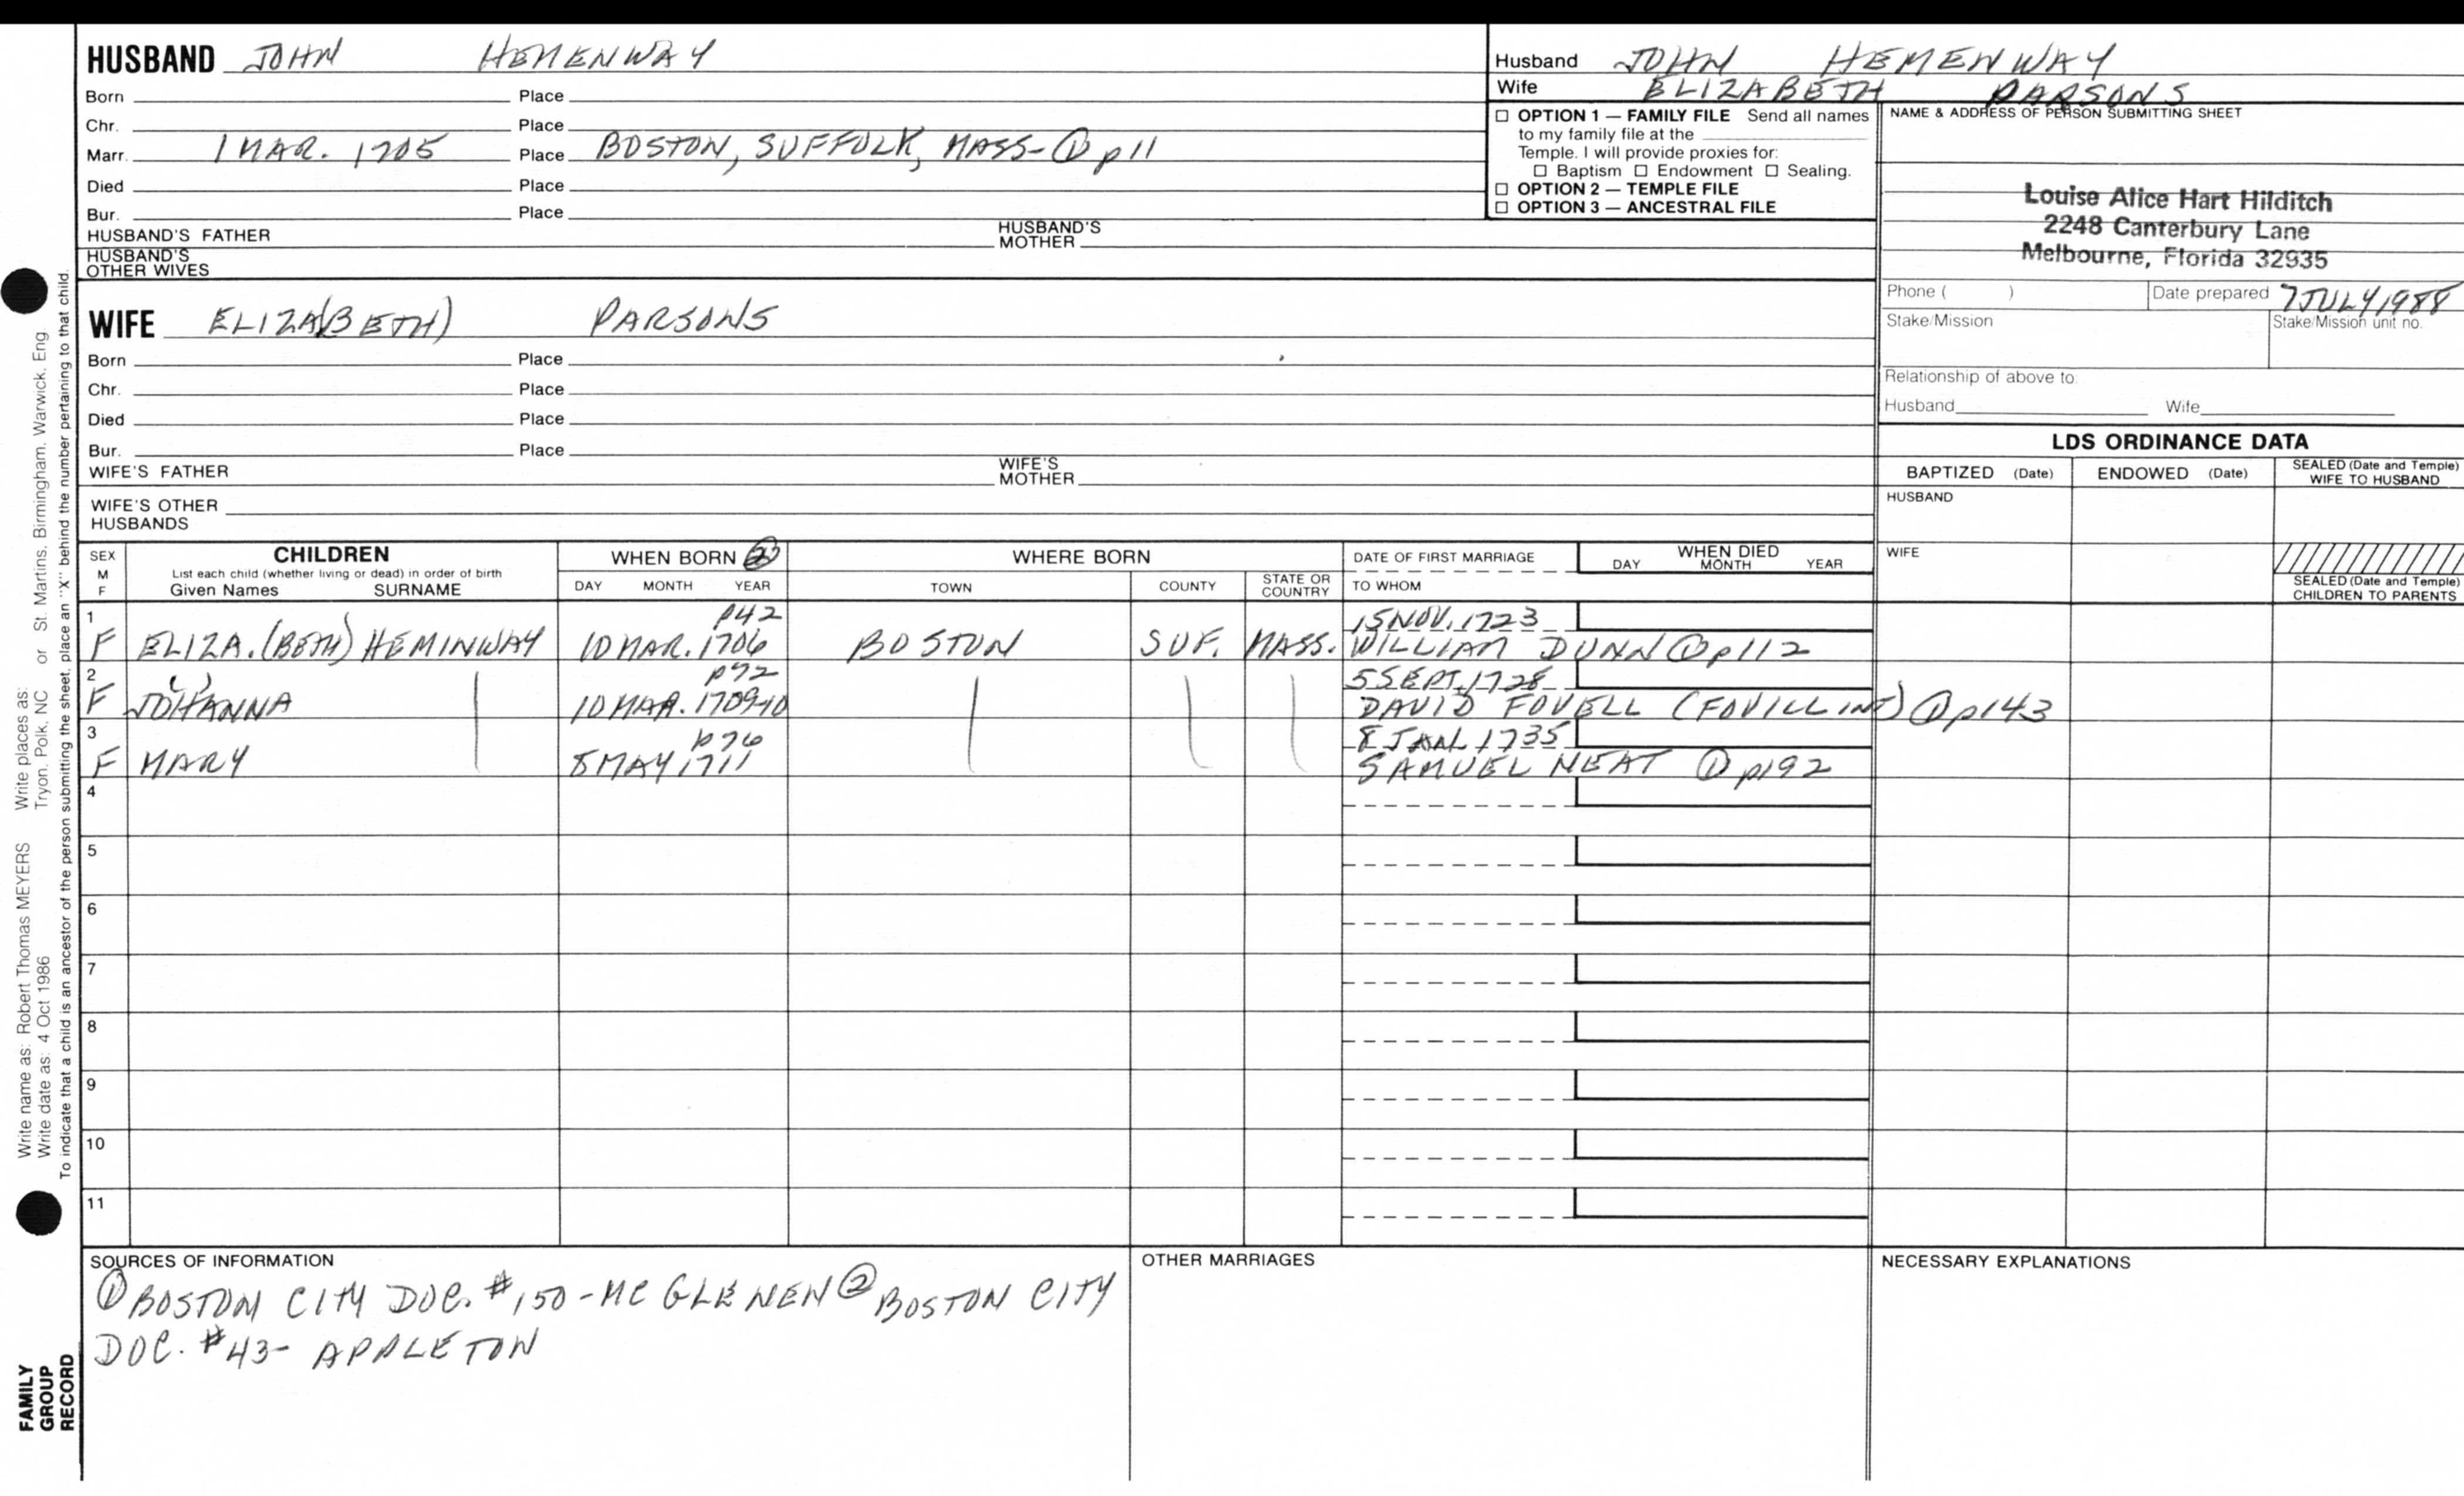 HUSBAND JOHN HEMENWAY
Born Place
Chr. Place
Marr. 1 MAR. 1705 Place BOSTON, SUFFOLK, MASS- ① p11
Died Place
Bur. Place
HUSBAND'S FATHER HUSBAND'S MOTHER
HUSBAND'S OTHER WIVES
WIFE ELIZA(BETH) PARSONS
Born Place
Chr. Place
Died Place
Bur. Place
WIFE'S FATHER WIFE'S MOTHER
WIFE'S OTHER HUSBANDS
Husband JOHN HEMENWAY
Wife ELIZABETH PARSONS
☐ OPTION 1 — FAMILY FILE Send all names
to my family file at the
Temple. I will provide proxies for:
☐ Baptism ☐ Endowment ☐ Sealing.
☐ OPTION 2 — TEMPLE FILE
☐ OPTION 3 — ANCESTRAL FILE
NAME & ADDRESS OF PERSON SUBMITTING SHEET
Louise Alice Hart Hilditch
2248 Canterbury Lane
Melbourne, Florida 32935
Phone ( ) Date prepared 7 JULY 1988
Stake/Mission Stake/Mission unit no.
Relationship of above to:
Husband Wife
LDS ORDINANCE DATA
BAPTIZED (Date) ENDOWED (Date) SEALED (Date and Temple) WIFE TO HUSBAND
HUSBAND
WIFE
SEALED (Date and Temple) CHILDREN TO PARENTS
SEX M F CHILDREN WHEN BORN ② WHERE BORN DATE OF FIRST MARRIAGE WHEN DIED
List each child (whether living or dead) in order of birth
Given Names SURNAME DAY MONTH YEAR TOWN COUNTY STATE OR COUNTRY TO WHOM DAY MONTH YEAR
1 p42 15 NOV. 1723
F ELIZA.(BETH) HEMINWAY 10 MAR. 1706 BOSTON SUF. MASS. WILLIAM DUNN ① p112
2 p72 5 SEPT. 1728
F JO(H)ANNA 10 MAR. 1709-10 DAVID FOVELL (FOVILL INT) ① p143
3 p76 8 JAN. 1735
F MARY 8 MAY 1711 SAMUEL NEAT ① p192
4
5
6
7
8
9
10
11
SOURCES OF INFORMATION
① BOSTON CITY DOC. #150 - MC GLENEN ② BOSTON CITY
DOC. #43- APPLETON
OTHER MARRIAGES
NECESSARY EXPLANATIONS
Write name as: Robert Thomas MEYERS Write places as: Tryon, Polk, NC or St. Martins, Birmingham, Warwick, Eng.
Write date as: 4 Oct 1986
To indicate that a child is an ancestor of the person submitting the sheet, place an "X" behind the number pertaining to that child.
FAMILY
GROUP
RECORD